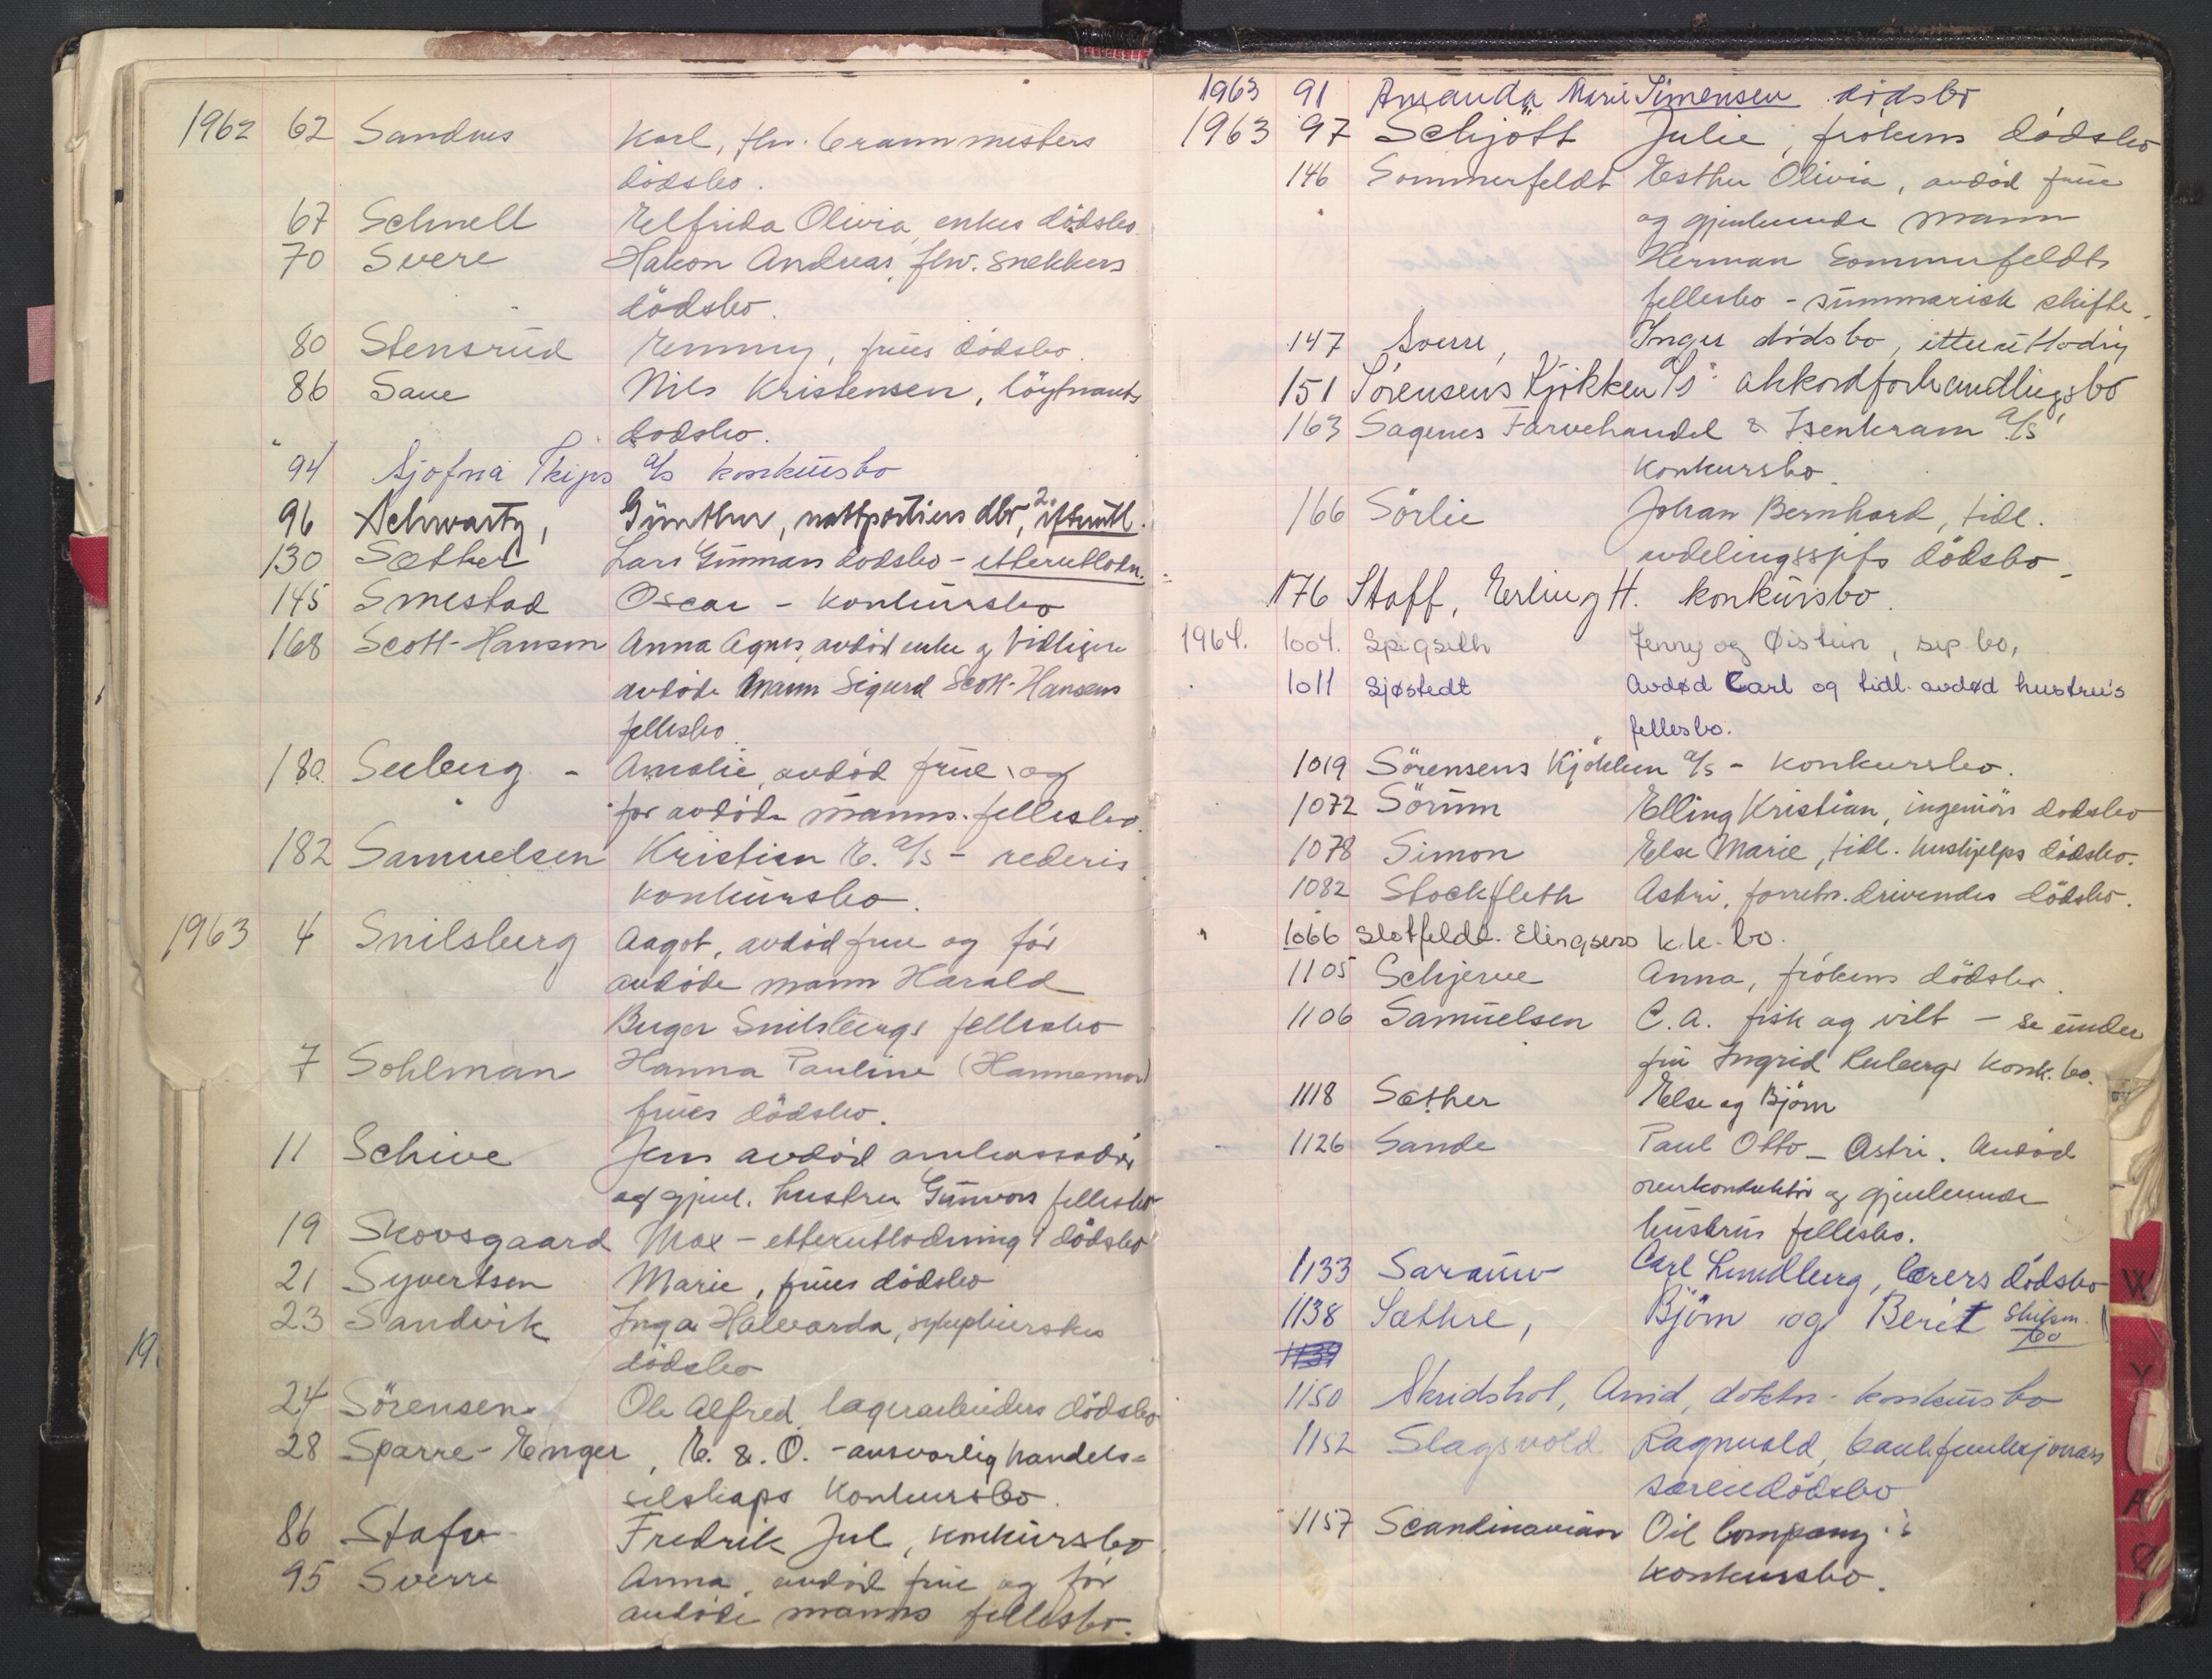 1962 62 Sandnes Karl, fhv. brannmesters
dödsbo.
67 Schnell Elfrida Olivia, enkes dödsbo
70 Svere Hakon Andreas, fhv. snekkers
dödsbo.
80 Stensrud Emmy, frues dödsbo.
86 Saue Nils Kristensen, löytnants
dödsbo.
94 Sjofna Skips a/s konkursbo
96 Schwartz, Günther, nattportiers dbo, 2. efterutl.
130 Sæther Lars Gunnars dödsbo - etterutlodn.
145 Smestad Oscar - konkursbo
168 Scott-Hansen Anna Agnes, avdöd enke og tidligere
avdöde mann Sigurd Scott-Hansens
fellesbo
180. Seeberg - Amalie, avdöd frue og
før avdöde manns fellesbo.
182 Samuelsen Kristian E. a/s - rederis
konkursbo.
1963 4 Snilsberg Aagot, avdöd frue og för
avdöde mann Harald
Birger Snilsbergs fellesbo
7 Sohlman Hanna Pauline (Hannemor)
frues dödsbo.
11 Schive Jens avdöd ambassadör
og gjenl. hustru Gunvors fellesbo
19 Skovsgaard Max - etterutlodning i dödsbo
21 Syvertsen Marie, frues dödsbo
23 Sandvik Inga Halvarda, sykepleierskes
dödsbo
24 Sörensen Ole Alfred, lagerarbeiders dödsbo
28 Sparre-Enger, E. & O. - ansvarlig handels=
selskaps konkursbo.
86 Stafv Fredrik Jul, konkursbo
95 Sverre Anna, avdöd frue og för
avdöde manns fellesbo.
19.
1963 91 Amanda Marie Simensen dödsbo
1963 97 Schjött Julie, frökens dödsbo
146 Sommerfeldt Esther Olivia, avdöd frue
og gjenlevende mann
Herman Sommerfeldts
fellesbo - summarisk skifte.
147 Sverre, Inger dödsbo, etterutlodng
151 Sörensens Kjökken A/S akkordforhandlingsbo
163 Sagenes Farvehandel & Isenkram A/S
konkursbo
166 Sörlie Johan Bernhard, tidl.
avdelingssjefs dödsbo
176 Staff, Erling H. konkursbo.
1964. 1004. Spigseth Jenny og Øistein, sep bo,
1011 Sjøstedt Avdød Carl og tidl. avdød hustrus
fellesbo.
1019 Sörensens Kjökken a/s - konkursbo.
1072 Sörum Elling Kristian, ingeniörs dödsbo
1078 Simon Else Marie, tidl. hushjelps dödsbo.
1082 Stockfleth Astri, forretn.drivendes dödsbo.
1066 Slotfeldt-Ellingsens k.k. bo.
1105 Schjerve Anna, frökens dödsbo.
1106 Samuelsen C.A. fisk og vilt - se under
fru Ingrid konk. bo.
1118 Sæther Else og Björn
1126 Sande Paul Otto - Astri. Avdöd
overkonduktör og gjenlevende
hustrus fellesbo.
1133 Sarauw Carl Lundberg, lærers dödsbo
1138 Sæthre, Björn og Berit Skilsm.
bo
1139
1150 Skridshol, Arvid, doktr. konkursbo
1152 Slagsvold Ragnvald, bankfunksjonærs
særeiedödsbo
1157 Scandinavian Oil Company's
konkursbo.
W
Y
Æ
Ø